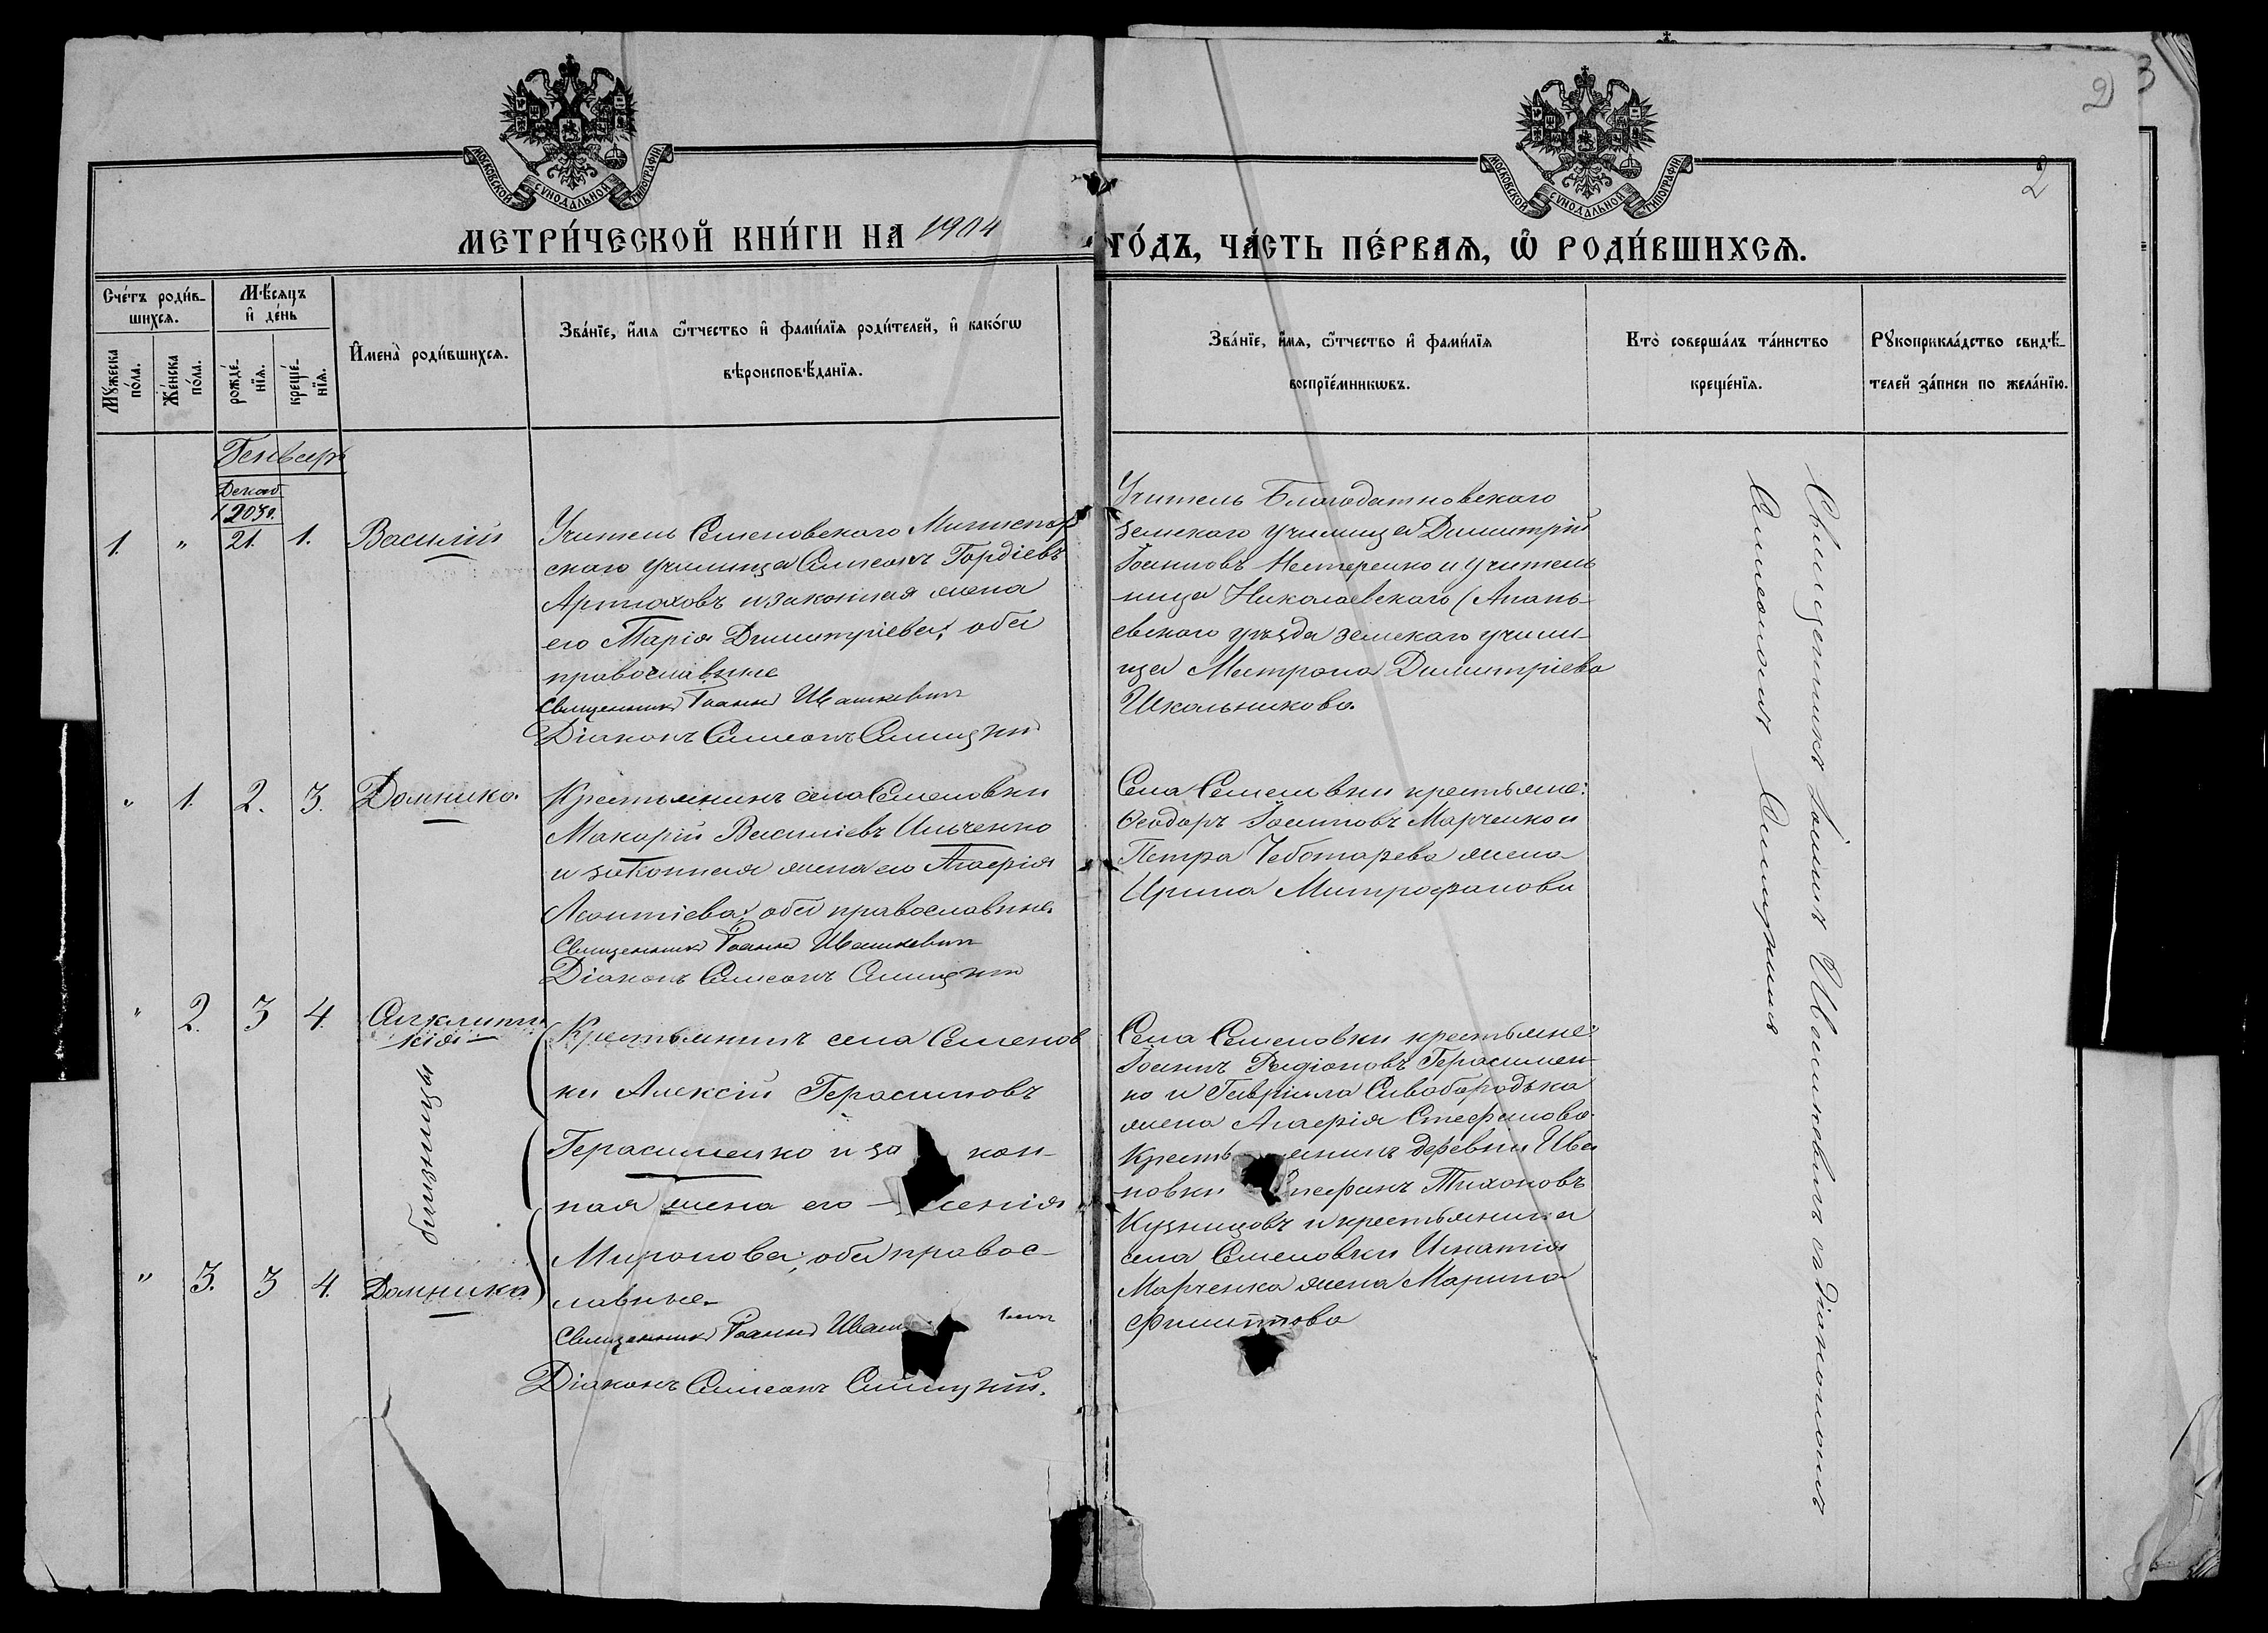 2
3
2
МОСКОВСКОЙ СѴНОДАЛЬНОЙ ТИПОГРАФІИ
МОСКОВСКОЙ СѴНОДАЛЬНОЙ ТИПОГРАФІИ
МЕТРИ́ЧЕСКОЙ КНИ́ГИ НА 1904
ГО́ДЪ, ЧА́СТЬ ПЕ́РВАѦ, Ѡ҆ РОДИ́ВШИХСѦ.
Сче́тъ роди́в-
шихсѧ.
Мѣ́сѧцъ
и҆ де́нь
Мꙋжеска
по́ла.
Же́нска
по́ла.
рожде́-
нїѧ.
креще́-
нїѧ.
И҆мена̀ роди́вшихсѧ.
Зва́нїе, и҆́мѧ ѻ҆́тчество и҆ фами́лїѧ роди́телей, и҆ како́гѡ
вѣроисповѣ́данїѧ.
Зва́нїе, и҆́мѧ, ѻ҆́тчество и҆ фами́лїѧ
воспрїе́мникѡвъ.
Кто̀ соверша́лъ та́инство
креще́нїѧ.
Рꙋкоприкла́дство свидѣ́-
телей за́писи по жела́нїю.
Генваръ
Декаб
1903 г.
1. " 21. 1. Василій
Учитель Семеновскаго Министер
скаго училища Симеонъ Гордіевъ
Артюховъ и законная жена
его Марія Димитріева; оба
православные
Священникъ Іоаннъ Ивашкевич
Діаконъ Симеонъ Синицкій
Учитель Благодатновскаго
земскаго училища Димитрій
Іоанновъ Нестеренко и учитель
ница Николаевскаго (Анань-
евскаго уѣзда земскаго учили-
ща Матрона Димитріева
Школьникова.
" 1. 2. 3. Домника.
Крестьянинъ села Семеновки
Макарій Василіевъ Ильченко
и законная жена его Агафія
Леонтіева; оба православные.
Священникъ Іоаннъ Ивашкевич
Діаконъ Симеонъ Синицкій
Села Семеновки крестьяне:
Ѳеодоръ Іоанновъ Марченко и
Петра Чеботарева жена
Ирина Митрофанова
" 2. 3 4. Синклити
кія
близнецы
" 3. 3 4. Домника
Крестьянинъ села Семенов
ки Алексій Герасимовъ
Герасименко и за кон-
ная жена его сенія
Миронова; оба правос-
лавные.
Священникъ Іоаннъ Иваш вич
Діаконъ Симеонъ Синицкій.
Села Семеновки крестьяне:
Іоаннъ Родіоновъ Герасимен-
ко и Гавріила Сивобородька
жена Агафія Стефанова.
Кресть янинъ деревни Ива
новки тефанъ Тихоновъ
Кузнецовъ и крестьянина
села Семеновки Игнатія
Марченка жена Марина
Филиппова
Священникъ Іоаннъ Ивашкевичъ съ діакономъ
Симеономъ Синицкимъ